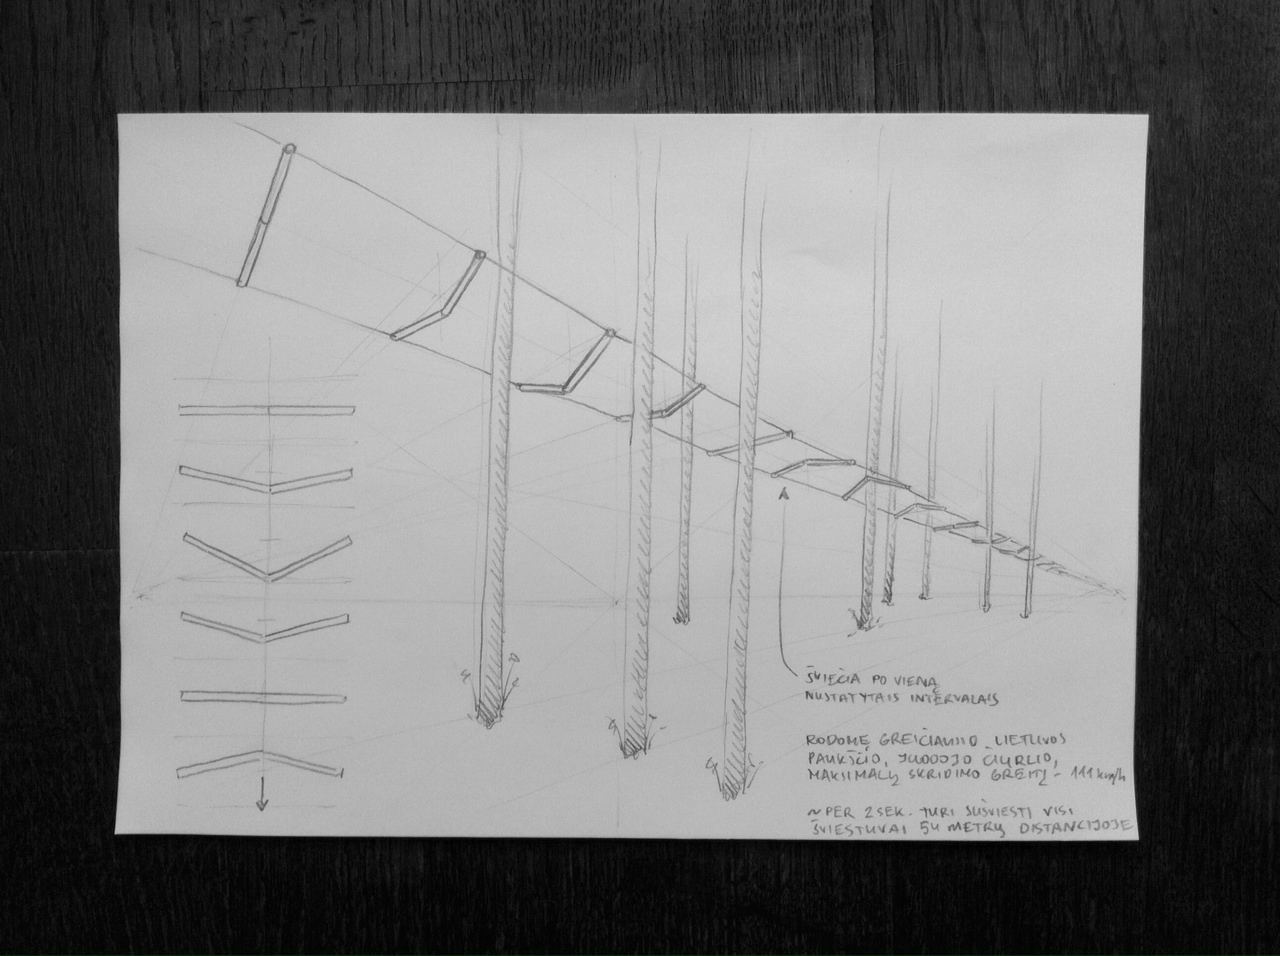 ŠVIEČIA PO VIENĄ
NUSTATYTAIS INTERVALAIS
RODOME GREIČIAUSIO LIETUVOS
PAUKŠČIO, JUODOJO ČIURLIO,
MAKSIMALŲ SKRIDIMO GREITĮ - 111 km/h
~ PER 2 SEK. TURI SUŠVIESTI VISI
ŠVIESTUVAI 54 METRŲ DISTANCIJOJE